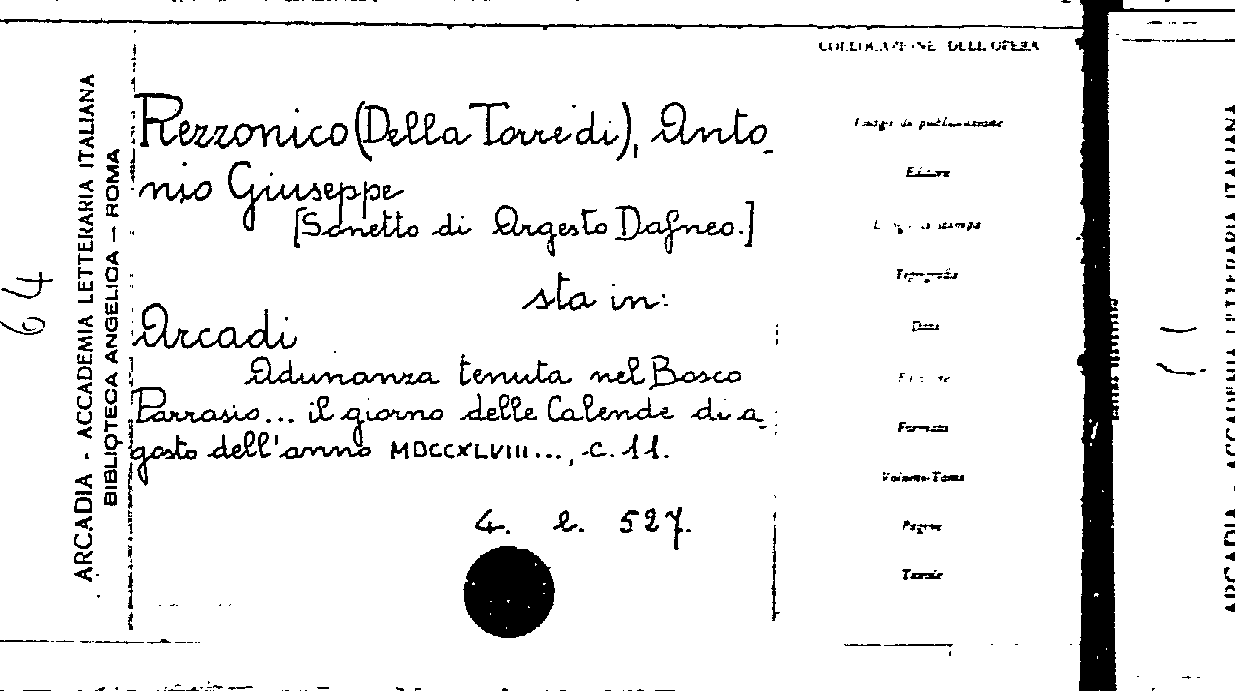 COLLOCAZIONE DELL'OPERA
Rezzonico (Della Torre di), Anto_
nio Giuseppe
[Sonetto di Argesto Dafneo.]
sta in:
Arcadi
Adunanza tenuta nel Bosco
Parrasio... il giorno delle Calende di a_
gosto dell'anno MDCCXLVIII..., c. 11.
4. l. 527.
64
ARCADIA - ACCADEMIA LETTERARIA ITALIANA
BIBLIOTECA ANGELICA - ROMA
Luogo di pubblicazione
Editore
Luogo di stampa
Tipografia
Data
Formato
Volume-Tomo
Pagine
Tavole
ARCADIA - ACCADEMIA LETTERARIA ITALIANA